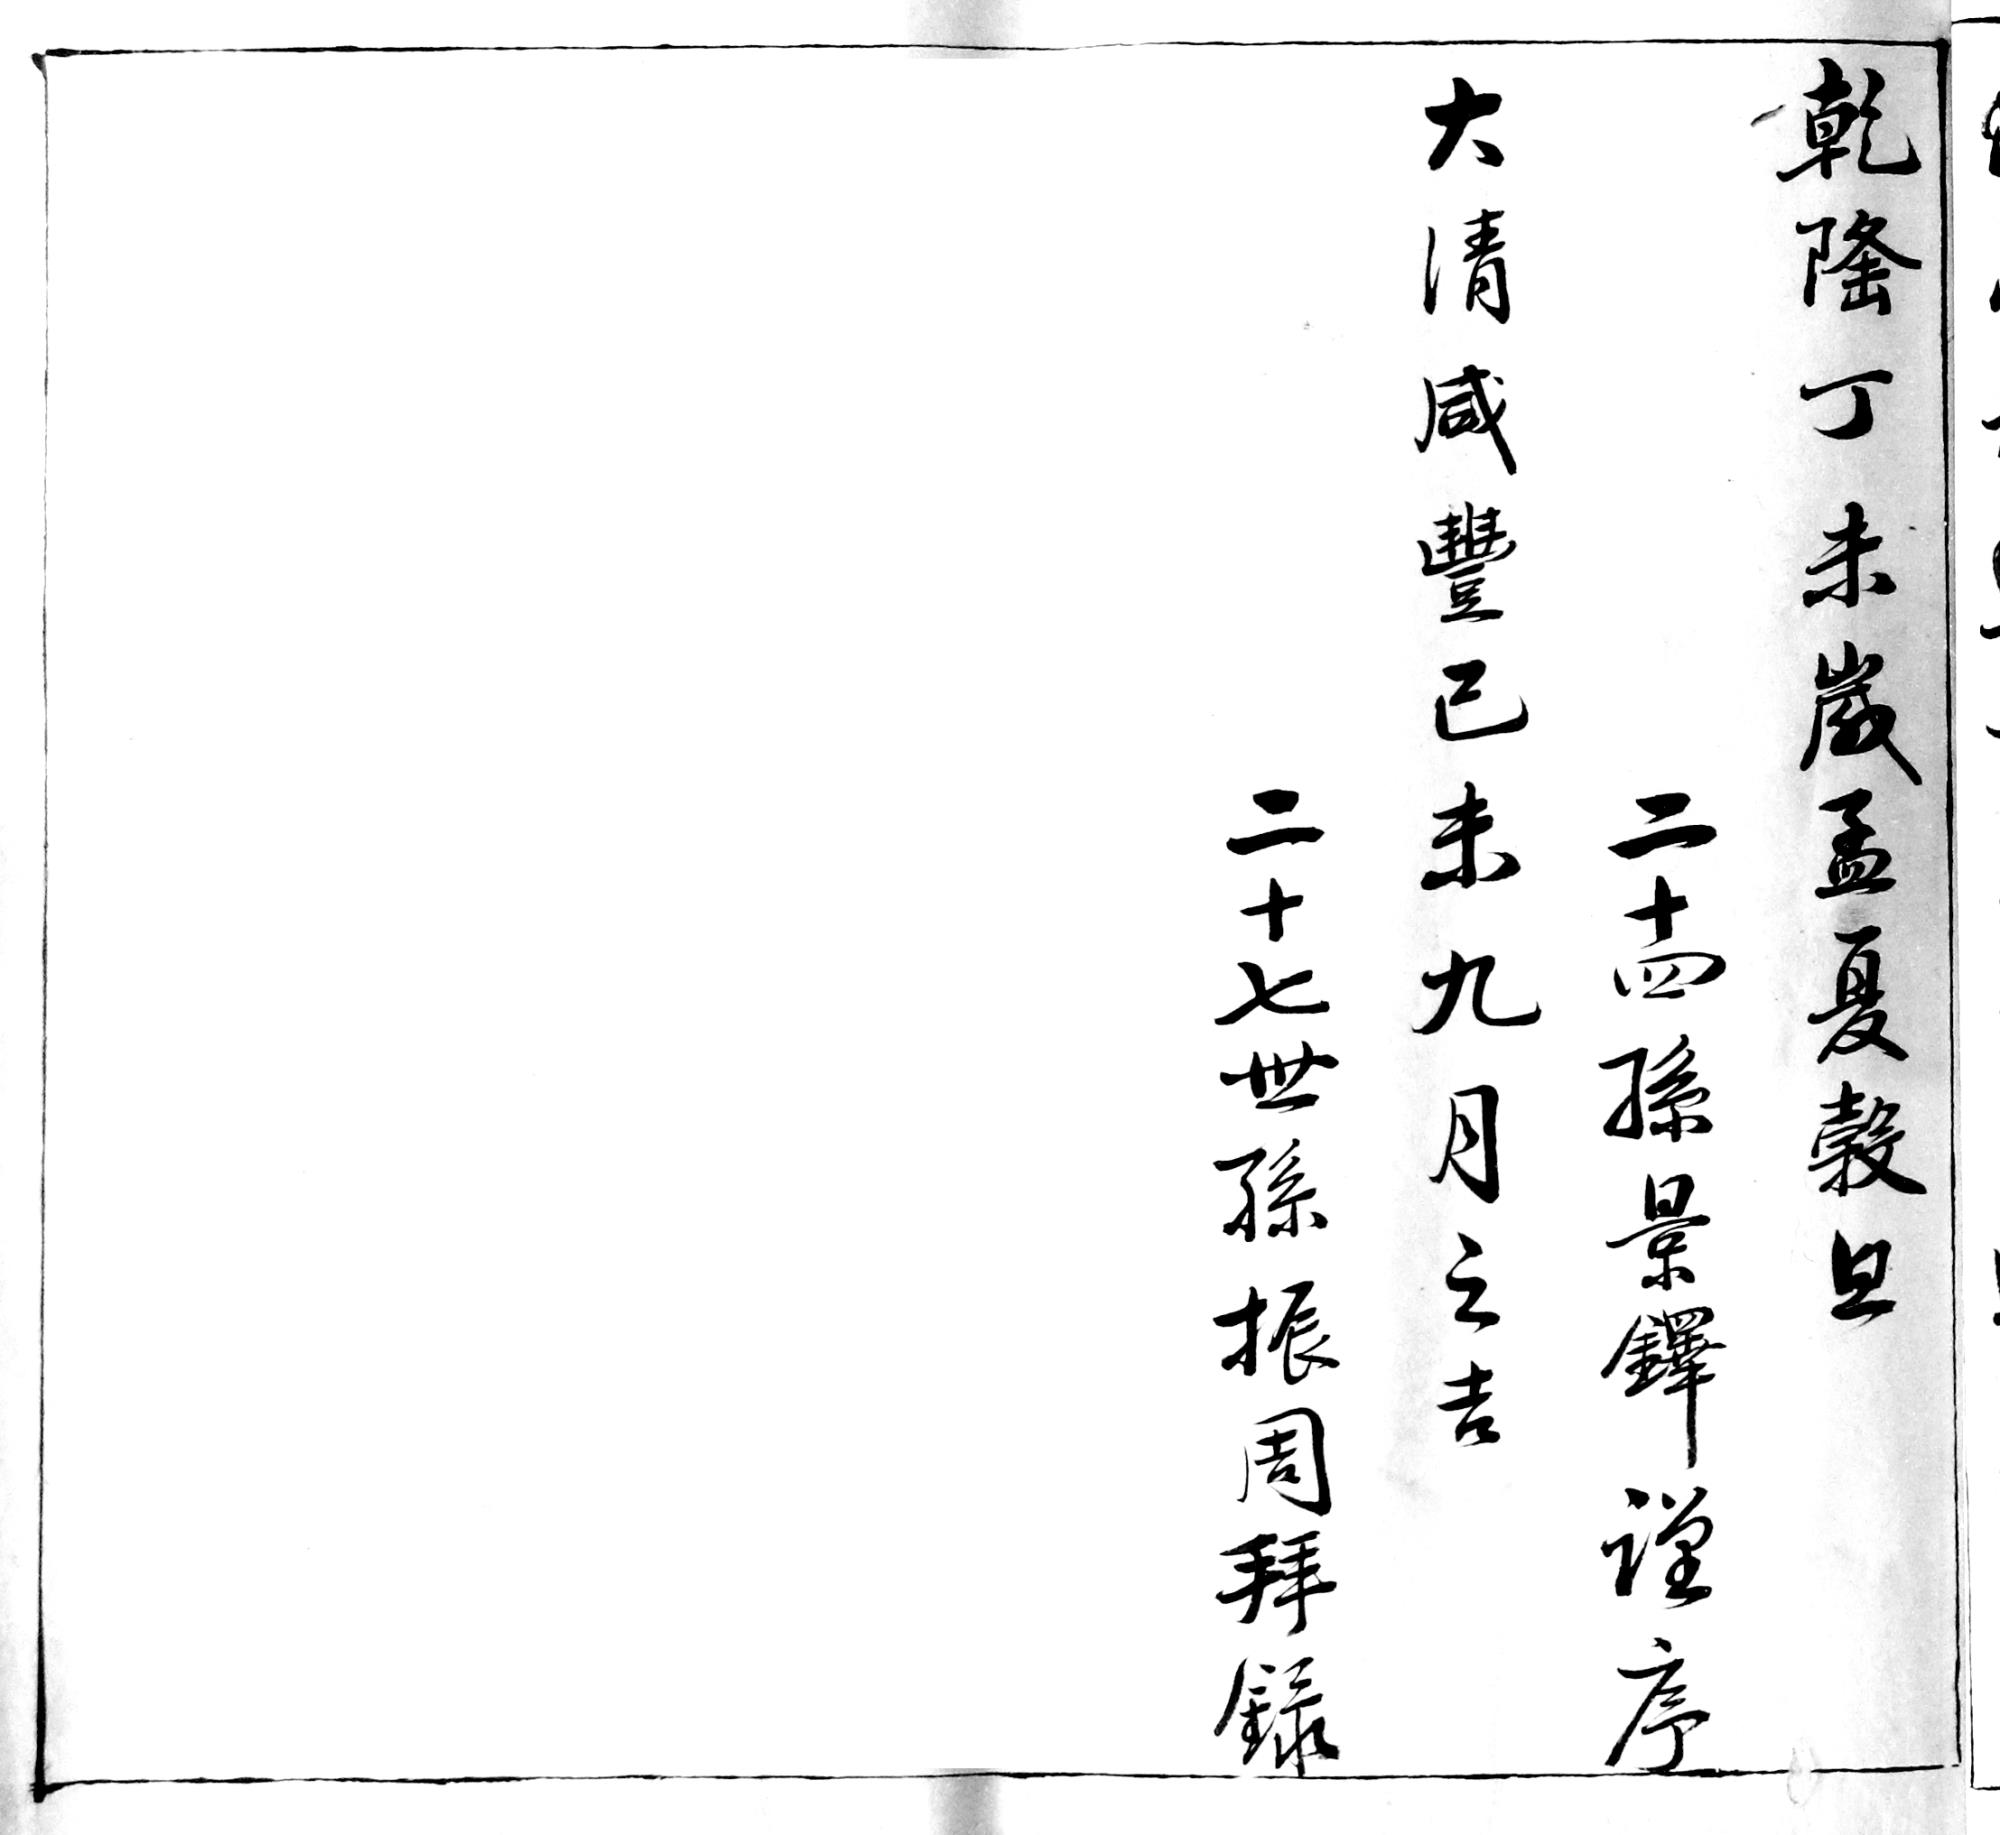 乾隆丁未歲孟夏穀旦
二十四孫景鐸謹序
大清咸豐己未九月之吉
二十七世孫振周拜錄